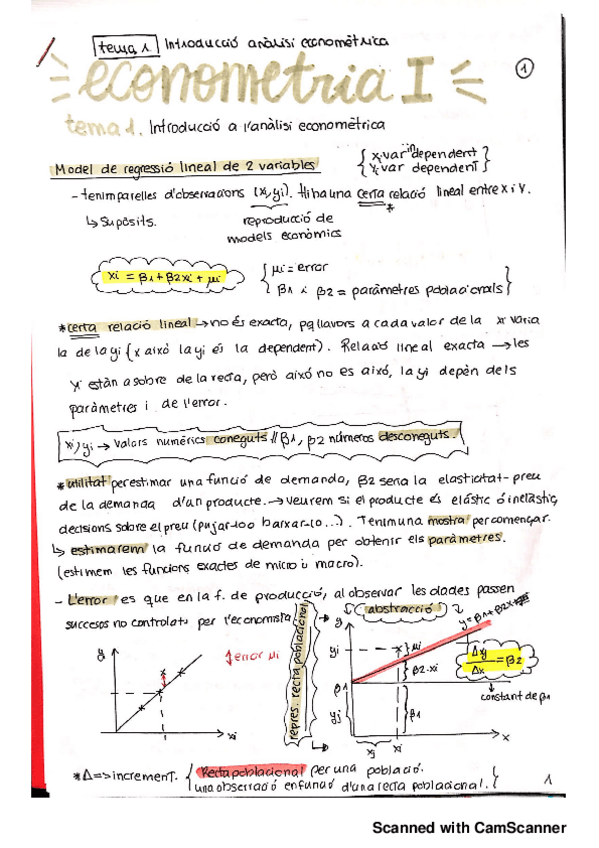 tema 1. Introducció anàlisi economètrica
1
econometria I
tema 1. Introducció a l'anàlisi economètrica
Model de regressió lineal de 2 variables
x: var independent
y: var dependent
- tenim parelles d'observacions (xi, yi). Hi ha una certa relació lineal entre X i Y.
*
↳ supòsits.
reproducció de
models econòmics
xi = β1 + β2xi + μi
μi = error
β1 i β2 = paràmetres poblacionals
*certa relació lineal → no és exacta, pq llavors a cada valor de la xi varia
la de la yi (x això la yi és la dependent). Relació lineal exacta → les
yi estàn a sobre de la recta, però això no es així, la yi depèn dels
paràmetres i de l'error.
xi, yi → valors numèrics coneguts // β1, β2 números desconeguts.
*utilitat per estimar una funció de demanda, β2 seria la elasticitat-preu
de la demanda d'un producte. → veurem si el producte és elàstic o inelàstic,
decisions sobre el preu (pujar-lo o baixar-lo...). Tenim una mostra per començar.
↳ estimarem la funció de demanda per obtenir els paràmetres.
(estimem les funcions exactes de micro i macro).
- L'error es que en la f. de producció, al observar les dades passen
successos no controlats per l'economista
y
x
xi
error μi
repres. recta poblacional
abstracció
y
y = β1 + β2x
yi
x
μi
β2·xi
Δy/Δx = β2
β1
constant de β1
yj
β1
xj
xi
x
*Δ => increment.
Recta poblacional per una població.
una observació en funció d'una recta poblacional.
1
Scanned with CamScanner